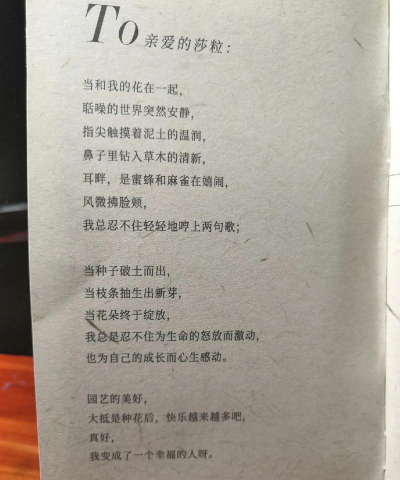 To 亲爱的莎粒：
当和我的花在一起，
聒噪的世界突然安静，
指尖触摸着泥土的温润，
鼻子里钻入草木的清新，
耳畔，是蜜蜂和麻雀在嬉闹，
风微拂脸颊，
我总忍不住轻轻地哼上两句歌；
当种子破土而出，
当枝条抽生出新芽，
当花朵终于绽放，
我总是忍不住为生命的怒放而激动，
也为自己的成长而心生感动。
园艺的美好，
大抵是种花后，快乐越来越多吧，
真好，
我变成了一个幸福的人呀。